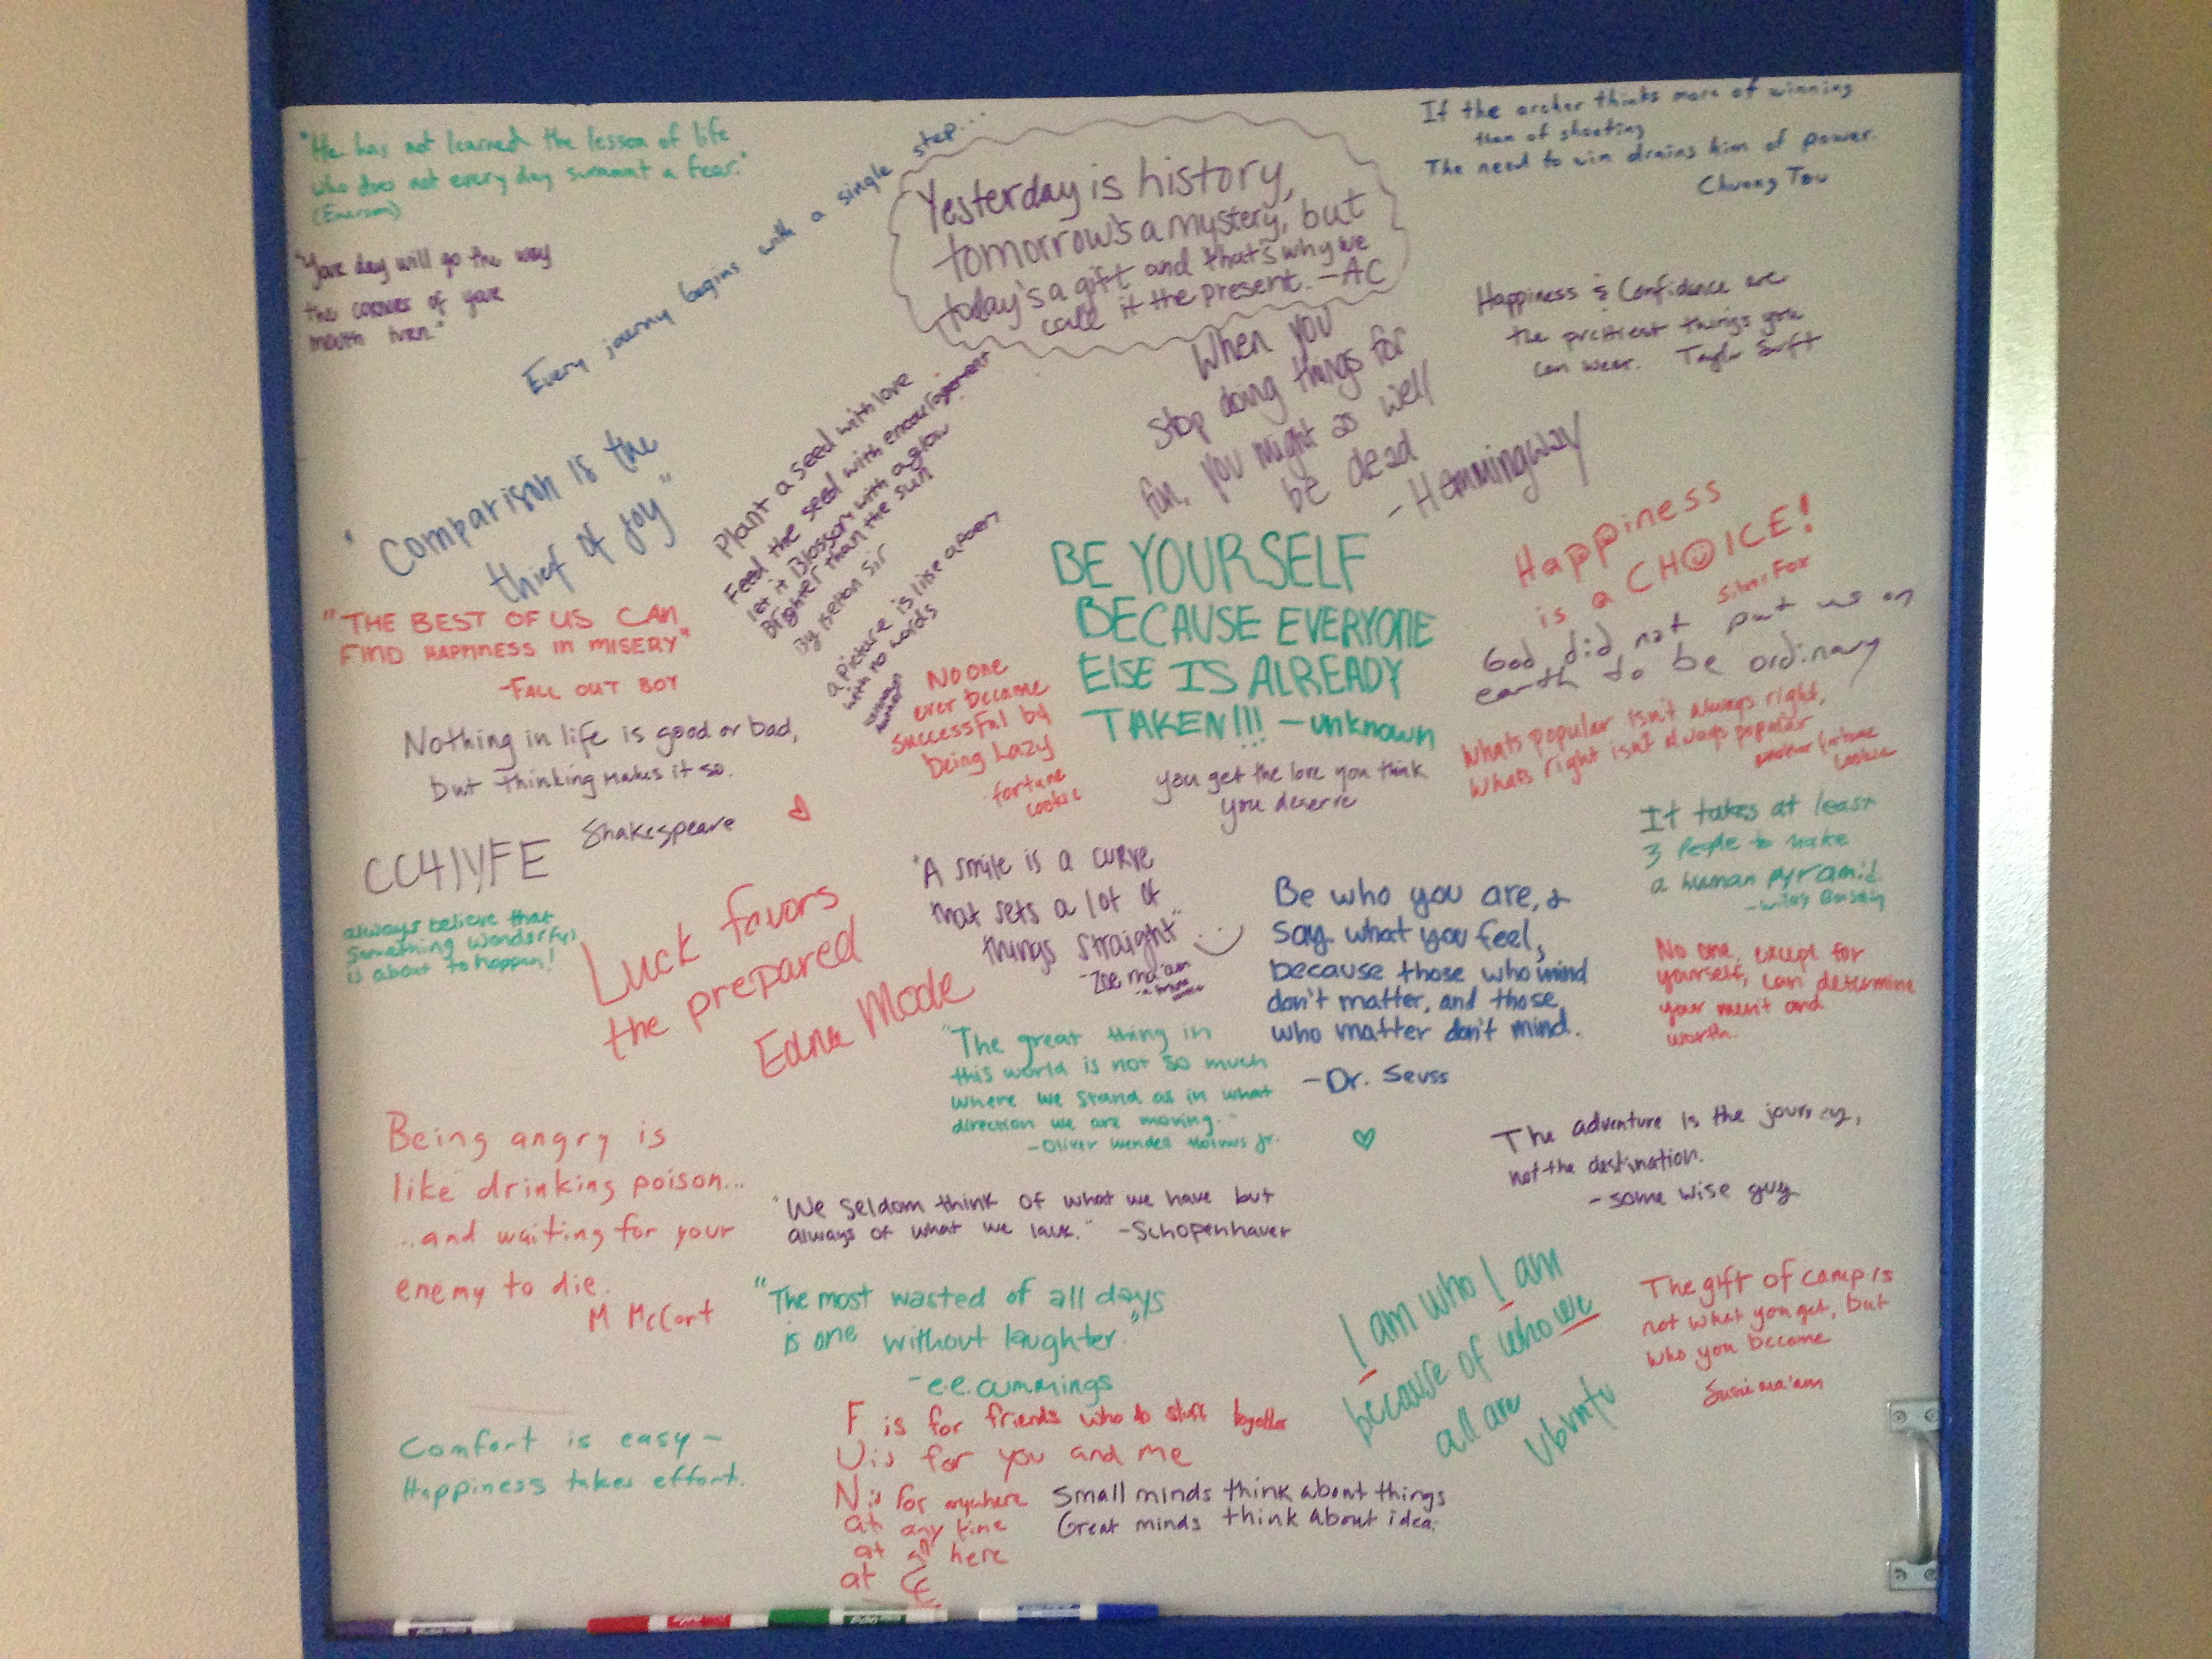 "He has not learned the lesson of life
who does not every day surmount a fear."
(Emerson)
"Your day will go the way
the corners of your
mouth turn."
Every journey begins with a single step...
Yesterday is history,
tomorrow's a mystery, but
today's a gift and that's why we
call it the present. -AC
If the archer thinks more of winning
than of shooting
The need to win drains him of power.
Happiness & Confidence are
the prettiest things you
can wear. Taylor Swift
When you
stop doing things for
fun, you might as well
be dead
- Hemmingway
"Comparison is the
thief of joy"
Plant a seed with love
Feed the seed with encouragement
let it Blossom with a glow
Brighter than the sun
a picture is like a poem
with no words
"THE BEST OF US CAN
FIND HAPPINESS IN MISERY"
-FALL OUT BOY
BE YOURSELF
BECAUSE EVERYONE
ELSE IS ALREADY
TAKEN!!! - unknown
Happiness
is a CHOICE!
Silver Fox
God did not put us on
earth to be ordinary
No one
ever became
successful by
being Lazy
fortune
cookie
Whats popular isn't always right,
Whats right isn't always popular
another fortune
cookie
Nothing in life is good or bad,
but thinking makes it so.
Shakespeare
you get the love you think
you deserve
CC4LYFE
It takes at least
3 people to make
a human pyramid
always believe that
something wonderful
is about to happen!
Luck favors
the prepared
Edna Mode
"A smile is a curve
that sets a lot of
things straight"
-Zoe ma'am
Be who you are, &
say what you feel,
because those who mind
don't matter, and those
who matter don't mind.
-Dr. Seuss
No one, except for
yourself, can determine
your merit and
worth.
"The great thing in
this world is not so much
where we stand as in what
direction we are moving."
-Oliver Wendell Holmes Jr.
Being angry is
like drinking poison...
...and waiting for your
enemy to die.
M McCort
The adventure is the journey,
not the destination.
-some wise guy
"We seldom think of what we have but
always of what we lack." -Schopenhauer
"The most wasted of all days
is one without laughter."
-e.e. cummings
I am who I am
because of who we
all are
Ubuntu
The gift of camp is
not what you get, but
who you become
Susie ma'am
Comfort is easy -
Happiness takes effort.
F is for friends who do stuff together
U is for you and me
N is for anywhere
at any time
at all here
at CC
Small minds think about things
Great minds think about idea.